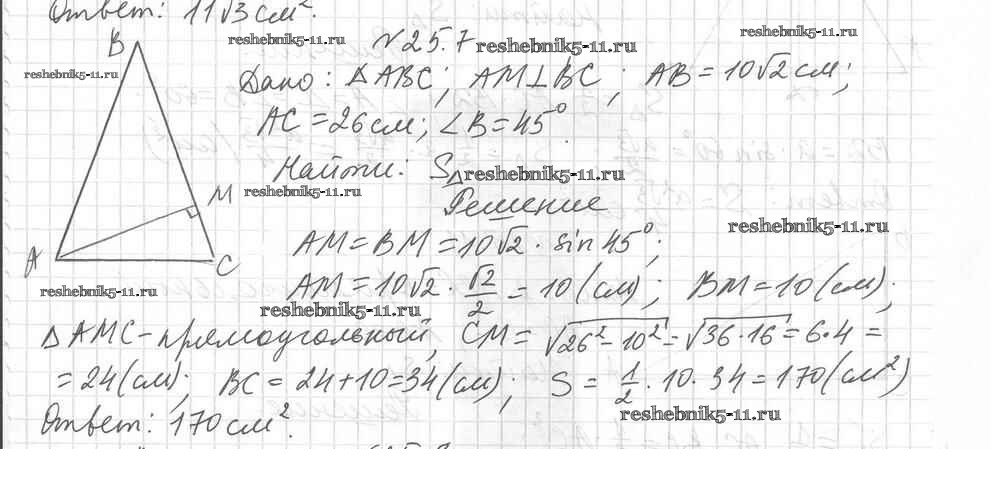 Ответ: 11√3 см².
B reshebnik5-11.ru №25.7 reshebnik5-11.ru reshebnik5-11.ru
reshebnik5-11.ru Дано: ΔABC; AM⊥BC; AB=10√2 см;
AC=26 см; ∠B=45°
Найти: S△ reshebnik5-11.ru
M reshebnik5-11.ru
Решение
reshebnik5-11.ru
A C AM=BM=10√2·sin45°;
reshebnik5-11.ru AM=10√2·√2/2=10(см); BM=10(см);
reshebnik5-11.ru
ΔAMC-прямоугольный, CM=√26²-10²=√36·16=6·4=
=24(см); BC=24+10=34(см); S=1/2·10·34=170(см²)
reshebnik5-11.ru
Ответ: 170 см².